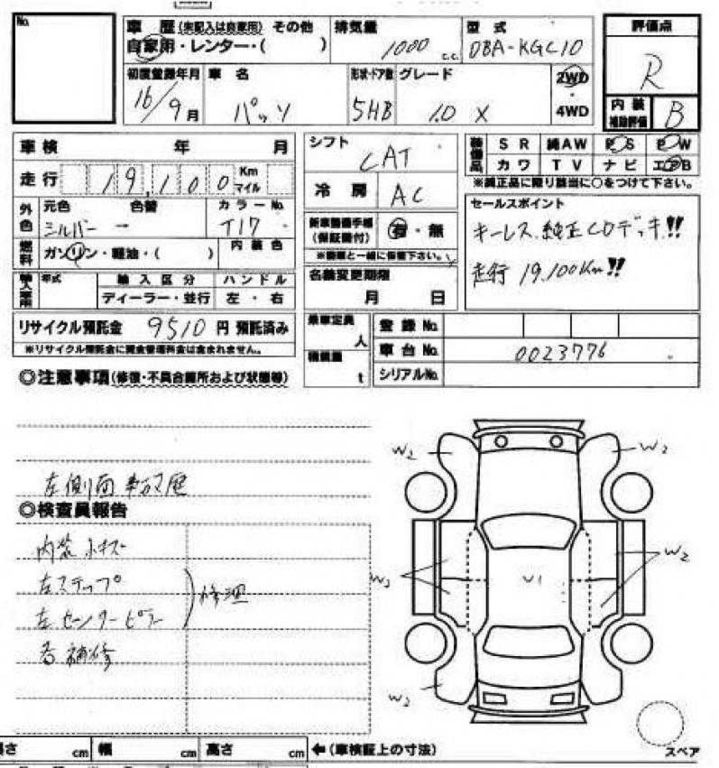 No.
車歴(未記入は自家用)その他 排気量 型式 評価点
自家用・レンター・( ) 1000 c.c. DBA-KGC10 R
初度登録年月 車名 形状・ドア数 グレード 2WD・4WD 内装補助評価 B
16/9月 パッソ 5HB 1.0 X
車検 年 月 シフト CAT 装備品 SR 純AW PS PW
走行 19,100 Km マイル 冷房 AC カワ TV ナビ エアB
※純正品に限り該当に○をつけて下さい。
外色 元色 色替 カラーNo. 新車整備手帳(保証書付) 有・無 セールスポイント
シルバー → T17 内装色 ※書類と一緒に保管下さい。 キーレス、純正CDデッキ!!
燃料 ガソリン・軽油・( ) 走行19,100Km!!
輸入車用 年式 輸入区分 ハンドル 名義変更期限
ディーラー・並行 左・右 月 日
リサイクル預託金 9510円 預託済み 乗車定員 人 登録No.
※リサイクル預託金に資金管理料金は含まれません。 積載量 t 車台No. 0023776
シリアルNo.
◎注意事項(修復・不具合箇所および状態等)
左側面事故歴
◎検査員報告
内装小キズ
左ステップ
左センターピラー
修理
各補修
W2 W2
W3 U1 W2
W2
スペア
長さ cm 幅 cm 高さ cm ←(車検証上の寸法)